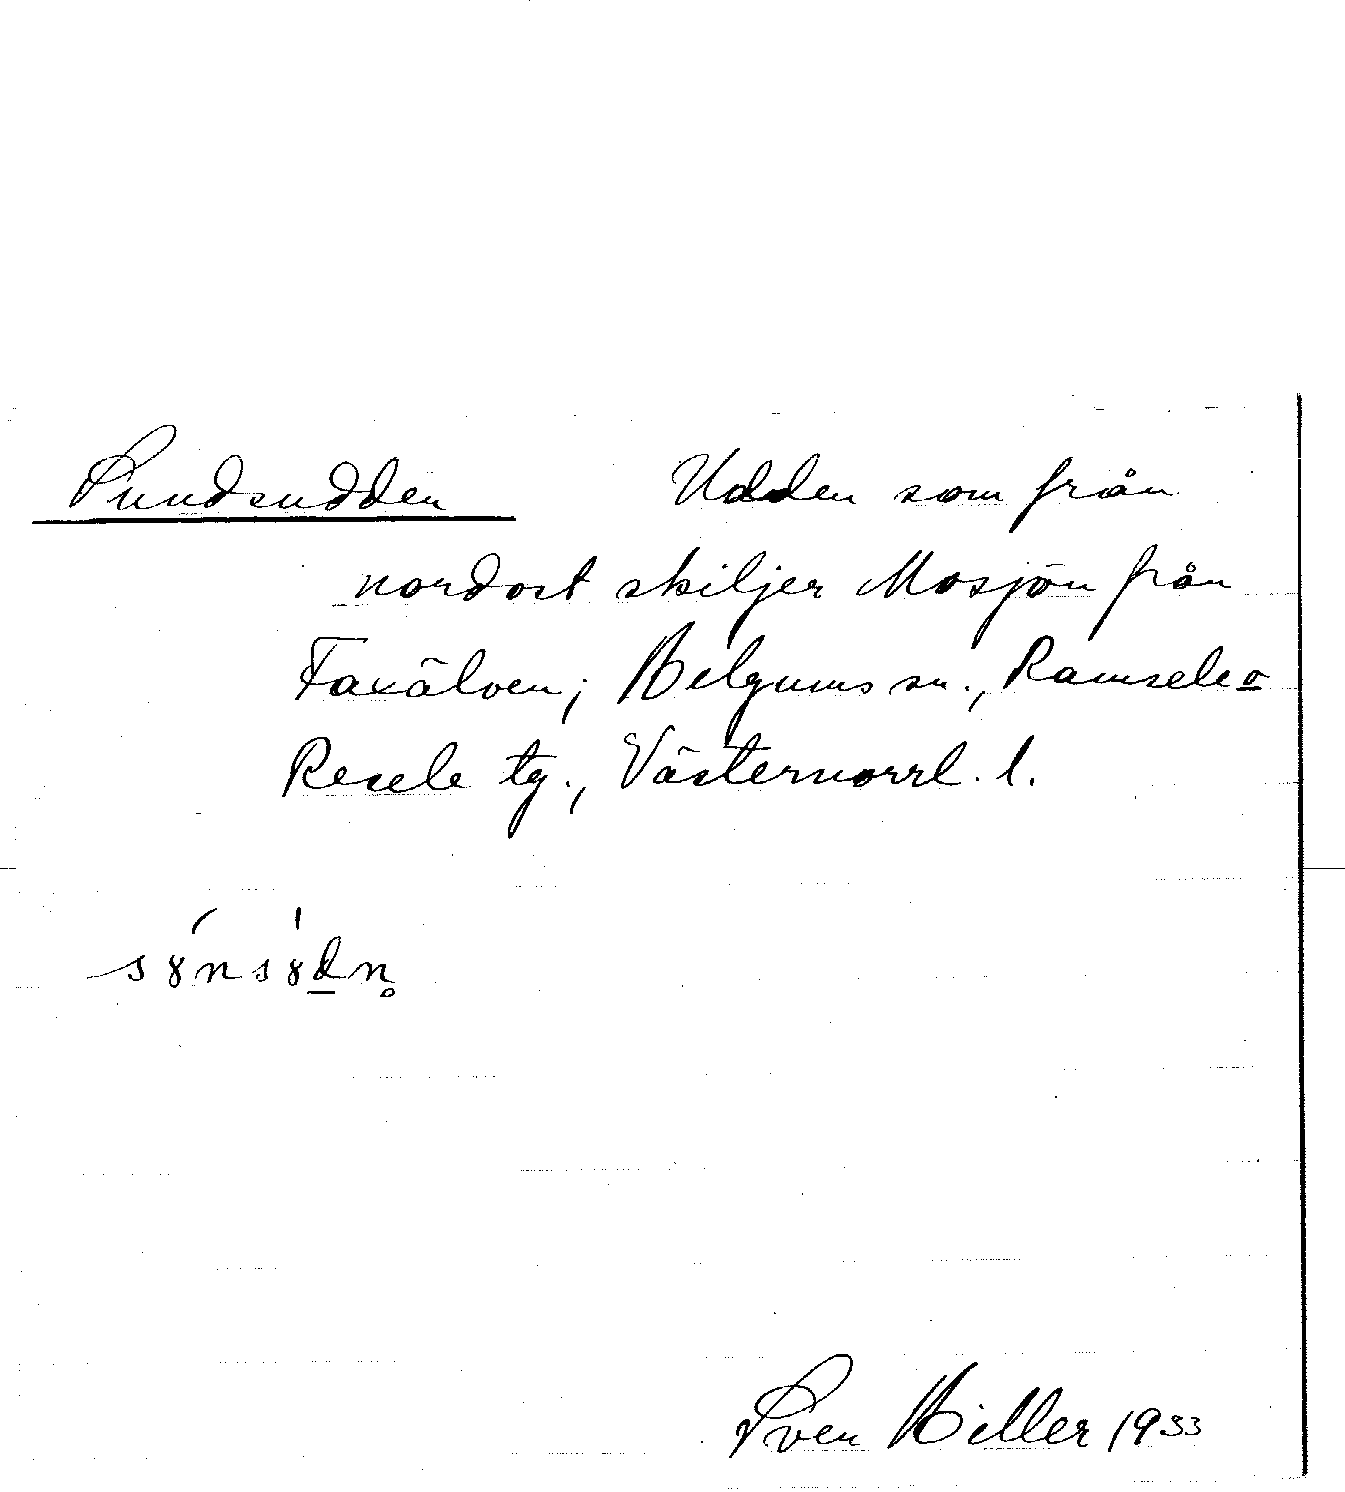 Sundsudden Udden som från
nordost skiljer Mosjön från
Faxälven; Helgums sn., Ramsele o
Resele tg., Västernorrl. l.
Sven Hiller 1933